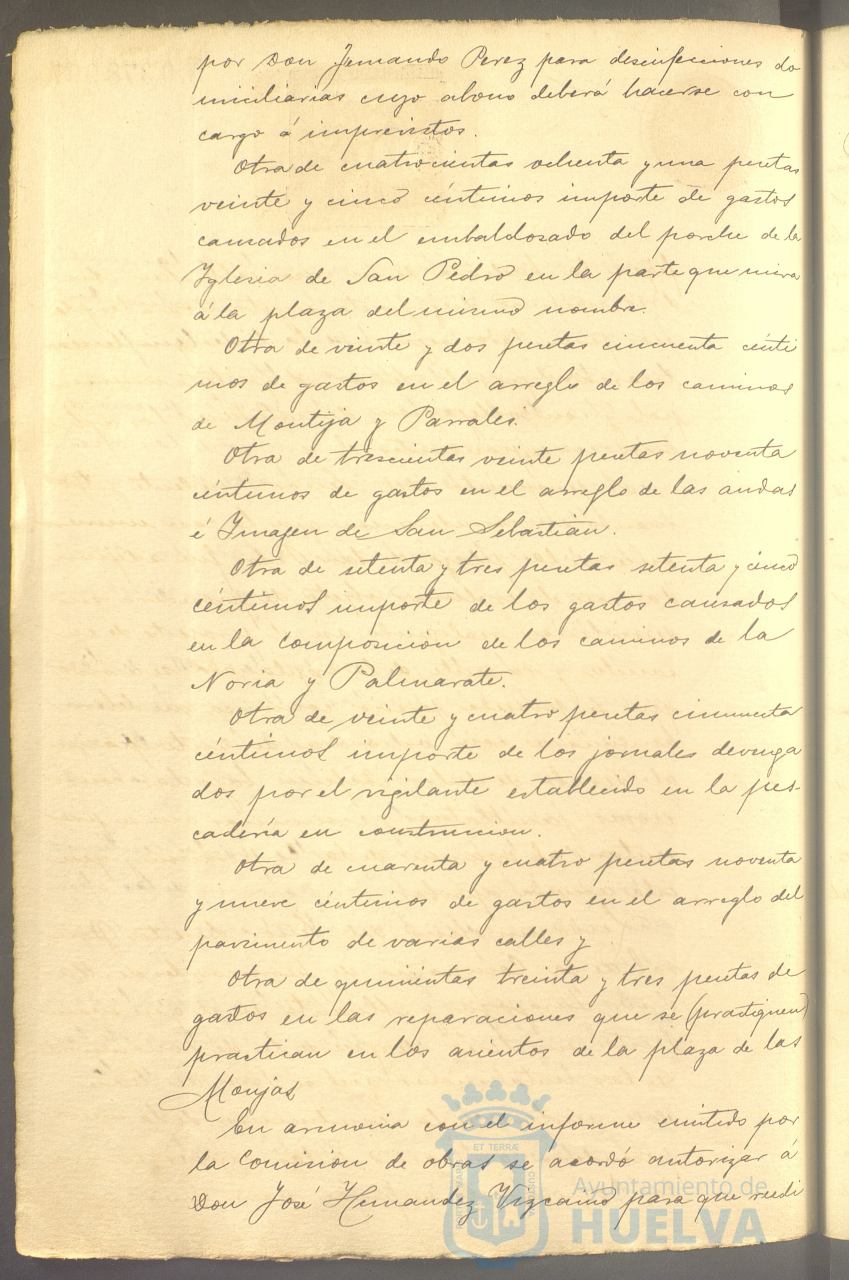 por Don Fernando Perez para desinfecciones do
miciliarias cuyo abono deberá hacerse con
cargo á imprevistos.
Otra de cuatrocientas ochenta y una pesetas
veinte y cinco céntimos importe de gastos
causados en el embaldosado del porche de la
Yglesia de San Pedro en la parte que mira
á la plaza del mismo nombre.
Otra de veinte y dos pesetas cincuenta cénti
mos de gastos en el arreglo de los caminos
de Montija y Parrales.
Otra de trescientas veinte pesetas noventa
céntimos de gastos en el arreglo de las andas
é Imagen de San Sebastián.
Otra de setenta y tres pesetas setenta y cinco
céntimos importe de los gastos causados
en la composición de los caminos de la
Noria y Palmarate.
Otra de veinte y cuatro pesetas cincuenta
céntimos importe de los jornales devenga
dos por el vigilante establecido en la pes-
cadería en construccion.
Otra de cuarenta y cuatro pesetas noventa
y nueve céntimos de gastos en el arreglo del
pavimento de varias calles y
Otra de quinientas treinta y tres pesetas de
gastos en las reparaciones que se (practiquen)
practican en los asientos de la plaza de las
Monjas
En armonia con el informe emitido por
la Comision de obras se acordó autorizar á
Don José Hernandez Vizcaino para que
ET TERRÆ
Ayuntamiento de
HUELVA